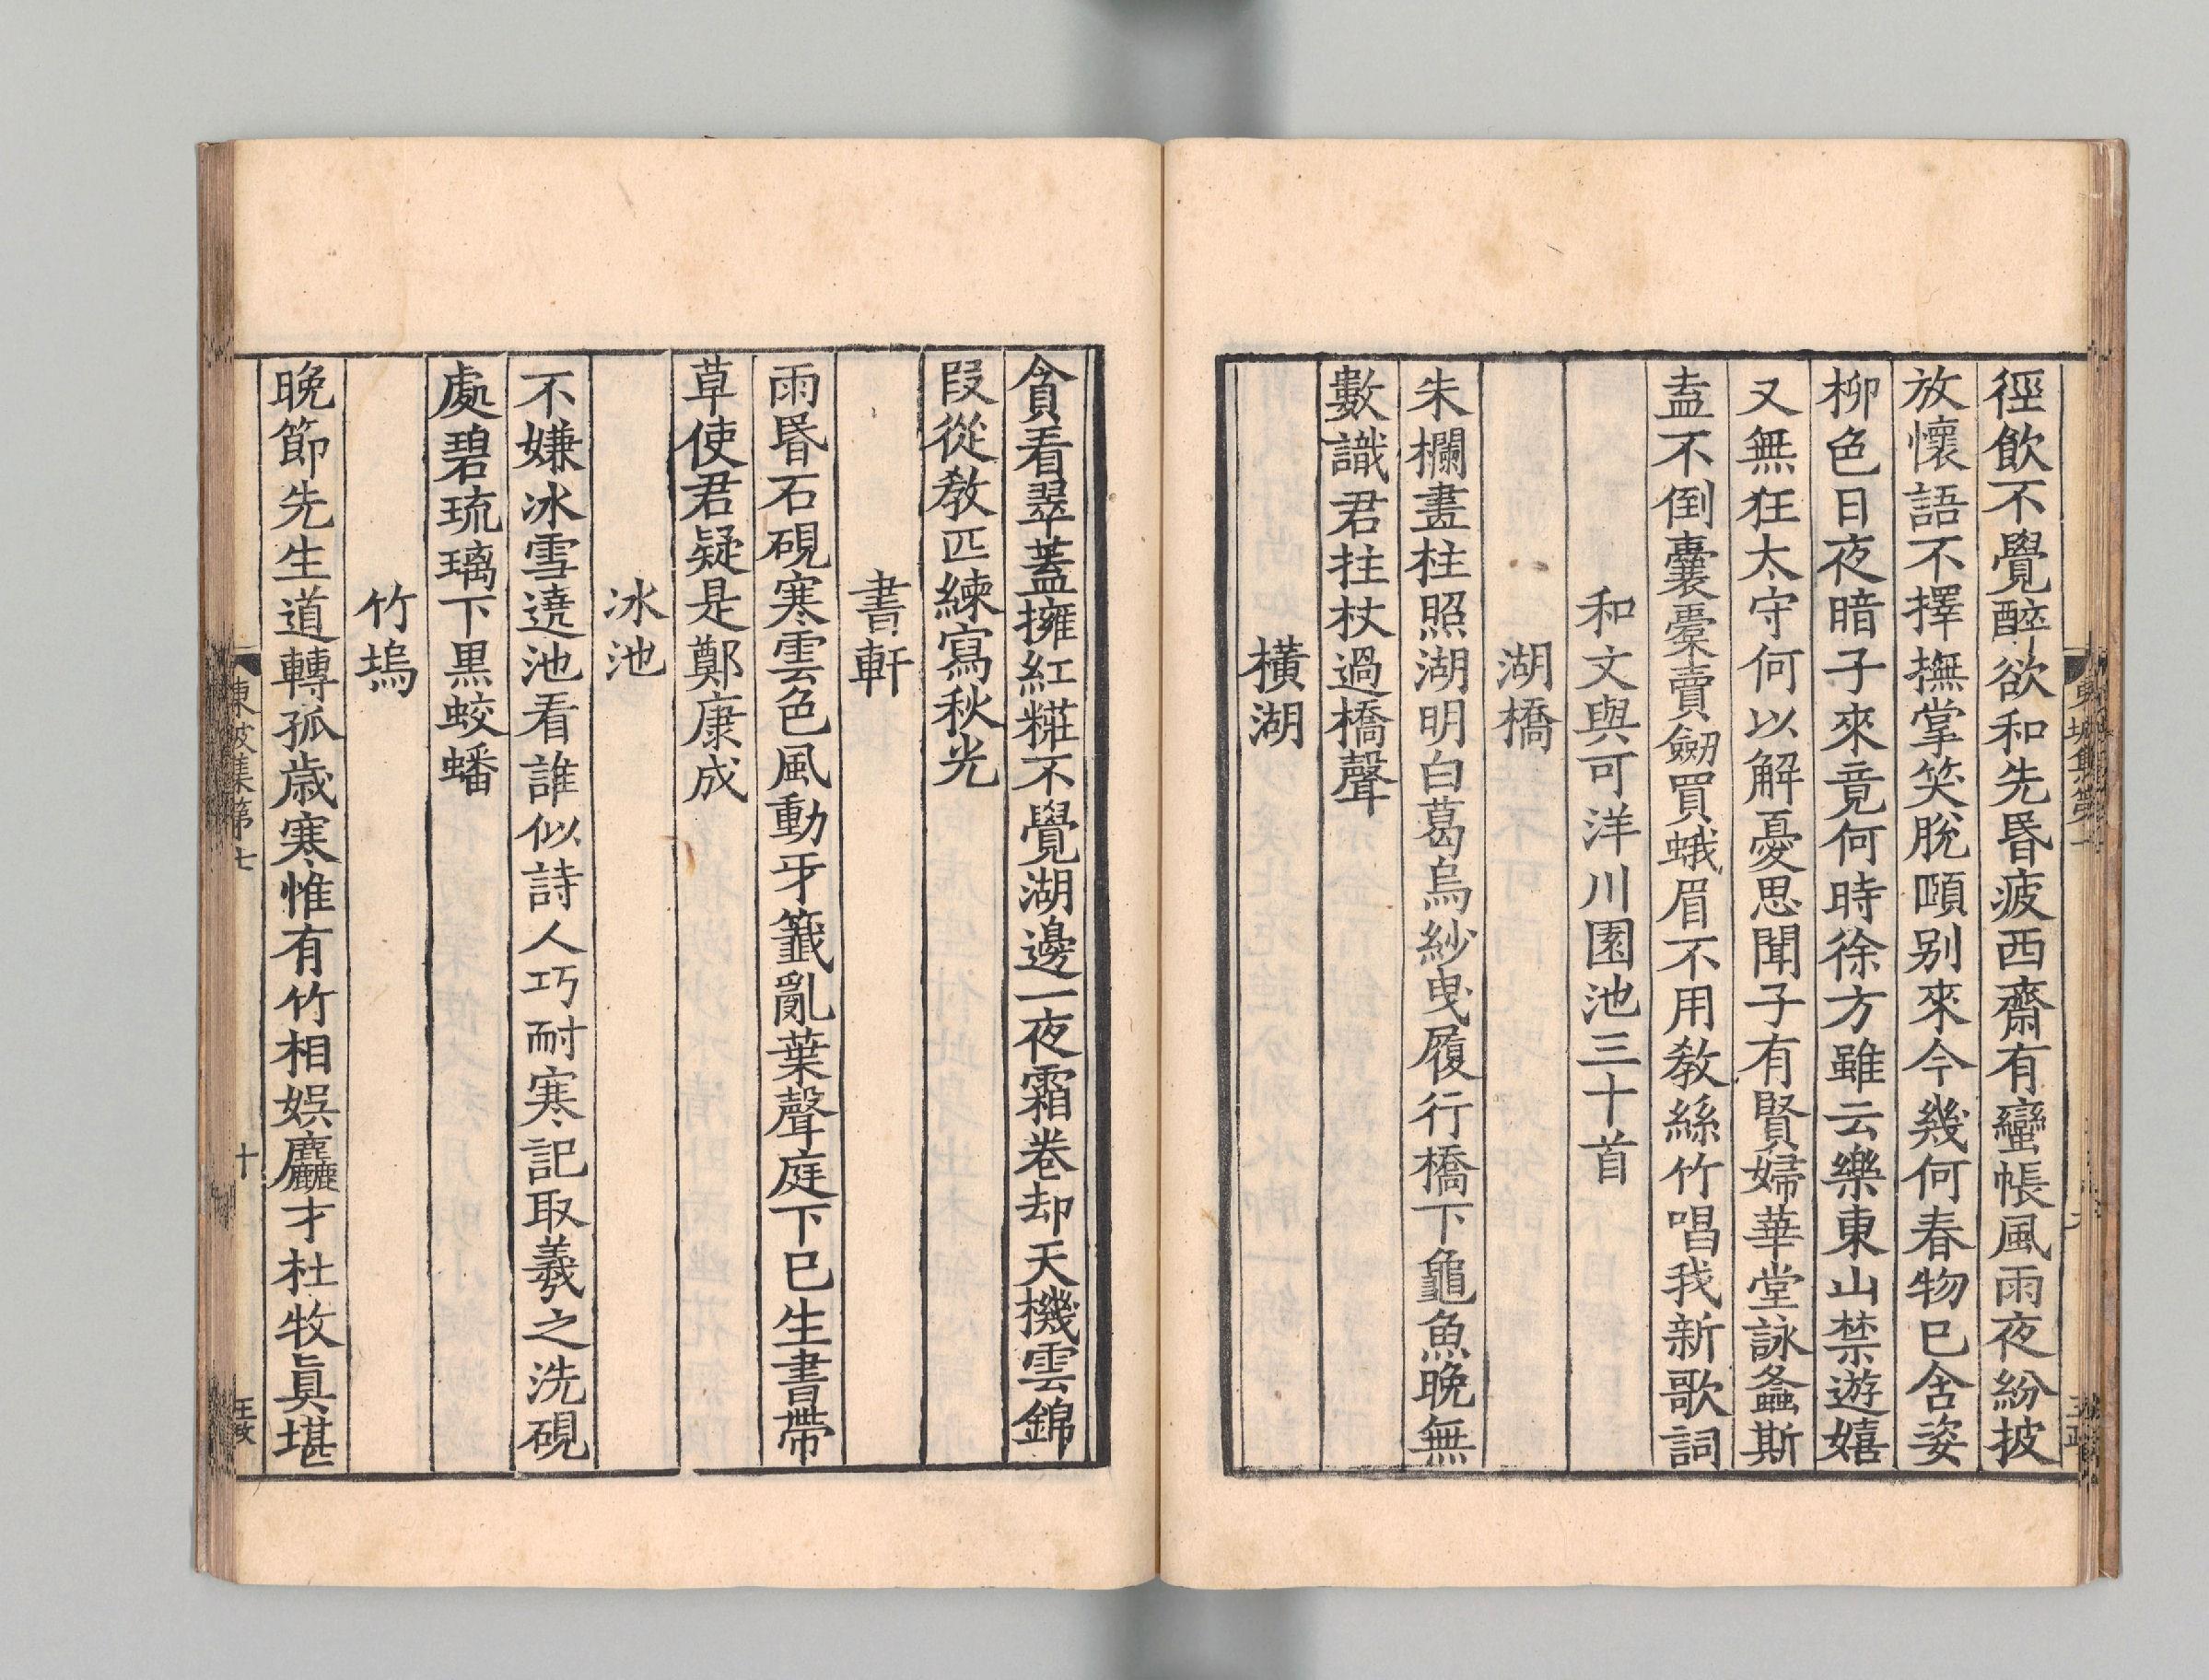 徑飲不覺醉欲和先昬疲西齋有蠻帳風雨夜紛披
放懷語不擇撫掌笑脫頤别來今幾何春物已含姿
柳色日夜暗子來竟何時徐方雖云樂東山禁遊嬉
又無狂太守何以解憂思聞子有賢婦華堂詠螽斯
盍不倒囊橐賣劒買蛾眉不用教絲竹唱我新歌詞
和文與可洋川園池三十首
湖橋
朱欄畫柱照湖明白葛烏紗曳履行橋下龜魚晚無
數識君拄杖過橋聲
橫湖
貪看翠蓋擁紅糚不覺湖邊一夜霜卷却天機雲錦
段從教匹練寫秋光
書軒
雨昬石硯寒雲色風動牙籤亂葉聲庭下已生書帶
草使君疑是鄭康成
冰池
不嫌冰雪遶池看誰似詩人巧耐寒記取羲之洗硯
處碧琉璃下黒蛟蟠
竹塢
晚節先生道轉孤歲寒惟有竹相娛麤才杜牧眞堪
東坡集第七
十